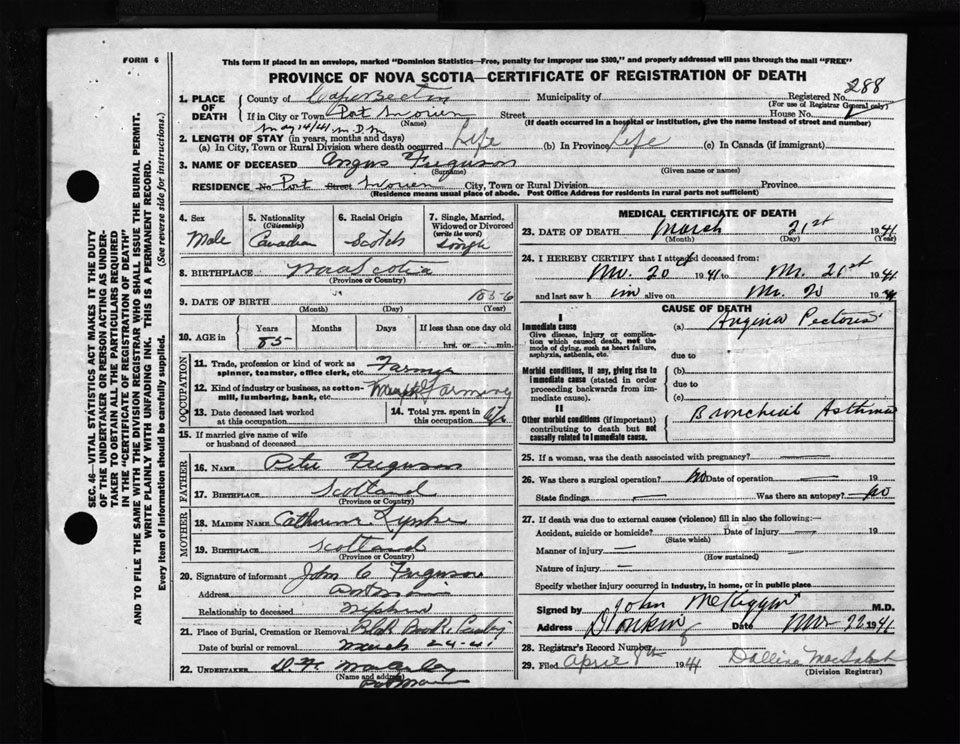 FORM 6
This form if placed in an envelope, marked "Dominion Statistics—Free, penalty for improper use $300," and properly addressed will pass through the mail "FREE"
PROVINCE OF NOVA SCOTIA—CERTIFICATE OF REGISTRATION OF DEATH
288
1. PLACE OF DEATH County of Cape Breton Municipality of Registered No.
(For use of Registrar General only)
If in City or Town Port Morien Street House No.
(Name) (If death occurred in a hospital or institution, give the name instead of street and number)
2. LENGTH OF STAY (in years, months and days)
(a) In City, Town or Rural Division where death occurred Life (b) In Province Life (c) In Canada (if immigrant)
3. NAME OF DECEASED Angus Ferguson
(Surname) (Given name or names)
RESIDENCE No. Port Street Morien City, Town or Rural Division Province
(Residence means usual place of abode. Post Office Address for residents in rural parts not sufficient)
4. Sex 5. Nationality (Citizenship) 6. Racial Origin 7. Single, Married, Widowed or Divorced (write the word)
Male Canadian Scotch Single
8. BIRTHPLACE Nova Scotia
(Province or Country)
9. DATE OF BIRTH 1856
(Month) (Day) (Year)
10. AGE in Years Months Days If less than one day old
85 hrs. or min.
OCCUPATION
11. Trade, profession or kind of work as spinner, teamster, office clerk, etc. Farmer
12. Kind of industry or business, as cotton-mill, lumbering, bank, etc. Farming
13. Date deceased last worked at this occupation
14. Total yrs. spent in this occupation Life
15. If married give name of wife or husband of deceased
FATHER
16. NAME Peter Ferguson
17. BIRTHPLACE Scotland
(Province or Country)
MOTHER
18. MAIDEN NAME Catherine
19. BIRTHPLACE Scotland
(Province or Country)
20. Signature of informant John C Ferguson
Address
Relationship to deceased Nephew
21. Place of Burial, Cremation or Removal
Date of burial or removal March 24-41
22. UNDERTAKER
(Name and address)
Port Morien
MEDICAL CERTIFICATE OF DEATH
23. DATE OF DEATH March 21st 1941
(Month) (Day) (Year)
24. I HEREBY CERTIFY that I attended deceased from:
Mr. 20 1941 to Mr. 21st 1941
and last saw h im alive on Mr. 20 1941
CAUSE OF DEATH
I
Immediate cause
Give disease, injury or complication which caused death, not the mode of dying, such as heart failure, asphyxia, asthenia, etc.
(a) Angina Pectoris
due to
Morbid conditions, if any, giving rise to immediate cause (stated in order proceeding backwards from immediate cause).
(b)
due to
(c)
II
Other morbid conditions (if important) contributing to death but not causally related to immediate cause.
Bronchial Asthma
25. If a woman, was the death associated with pregnancy?
26. Was there a surgical operation? No Date of operation 19
State findings Was there an autopsy? No
27. If death was due to external causes (violence) fill in also the following:—
Accident, suicide or homicide? Date of injury 19
(State which)
Manner of injury
(How sustained)
Nature of injury
Specify whether injury occurred in industry, in home, or in public place
Signed by John M.D.
Address Donkin Date Mar 22 1941
28. Registrar's Record Number
29. Filed April 8th 1941
(Division Registrar)
SEC. 46—VITAL STATISTICS ACT MAKES IT THE DUTY
OF THE UNDERTAKER OR PERSON ACTING AS UNDERTAKER TO OBTAIN ALL THE PARTICULARS REQUIRED
IN THE "CERTIFICATE OF REGISTRATION OF DEATH"
AND TO FILE THE SAME WITH THE DIVISION REGISTRAR WHO SHALL ISSUE THE BURIAL PERMIT.
WRITE PLAINLY WITH UNFADING INK. THIS IS A PERMANENT RECORD.
Every item of information should be carefully supplied. (See reverse side for instructions.)